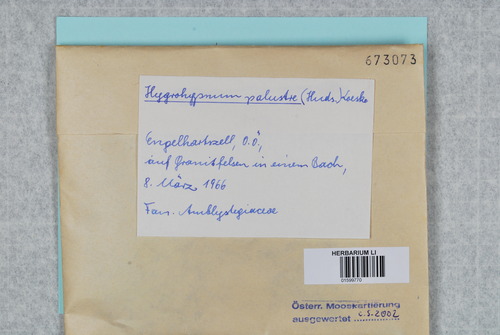 673073
Hygrohypnum palustre (Huds.) Loeske
Engelhartszell, O.Ö.,
auf Granitfelsen in einem Bach,
8. März 1966
Fam. Amblystegiaceae
HERBARIUM LI
01599770
Österr. Mooskartierung
ausgewertet c.S. 2002